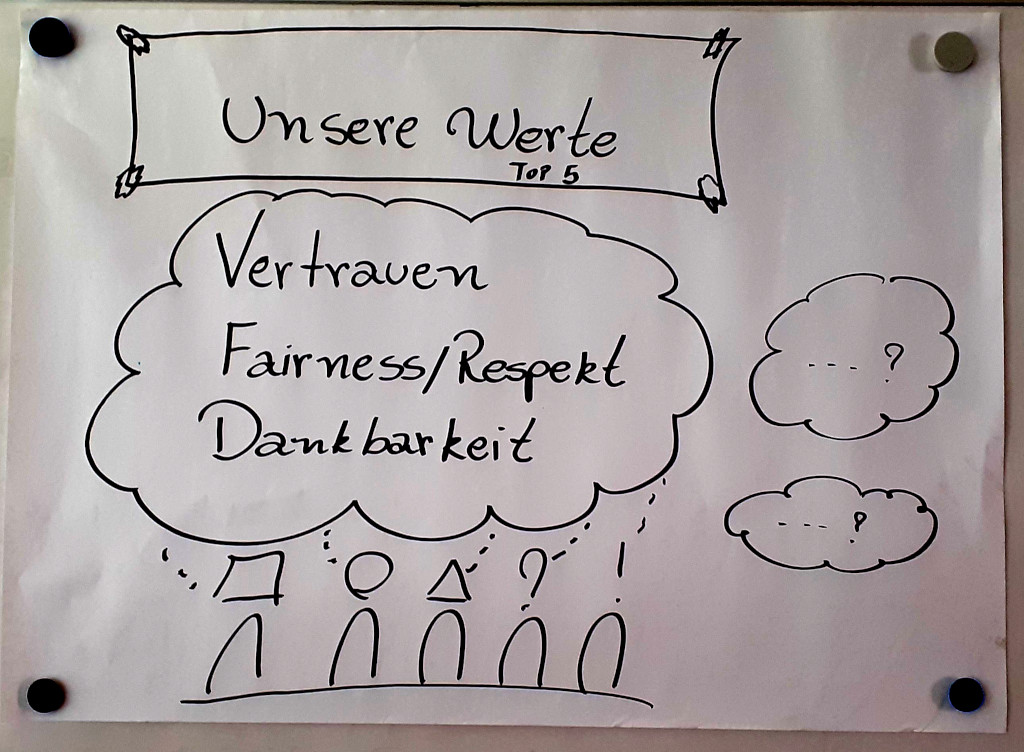 Unsere Werte
Top 5
Vertrauen
Fairness/Respekt
Dankbarkeit
---- ?
--- ?
? !